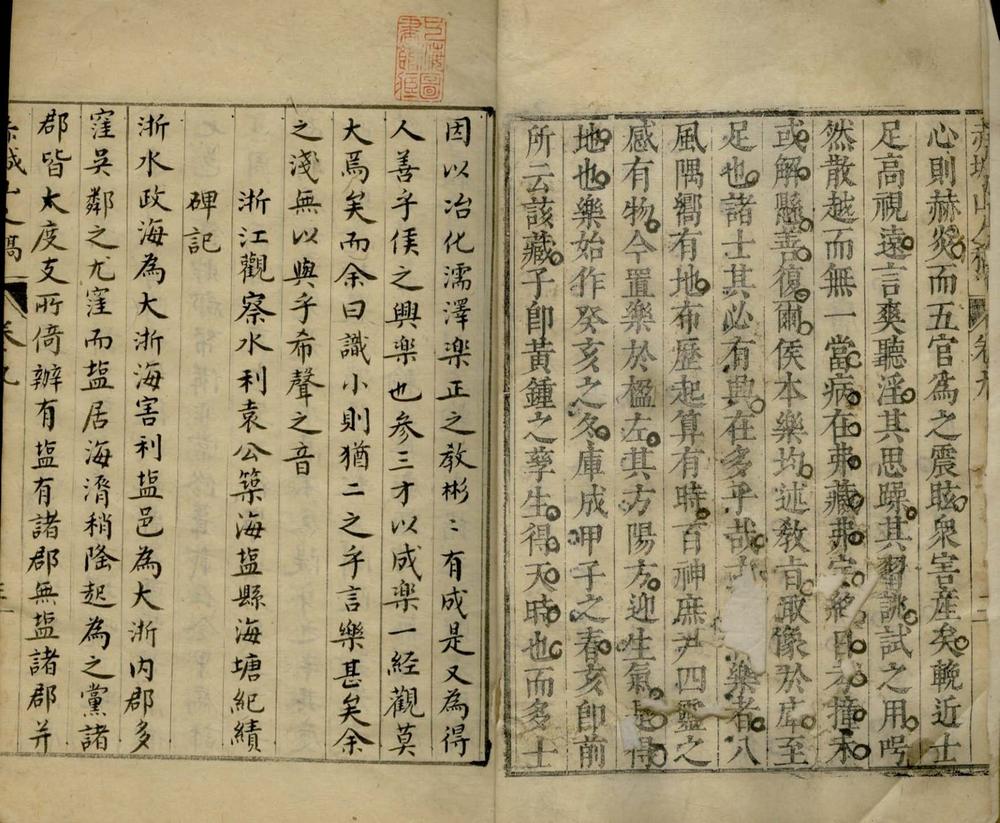 心則赫炎而五官為之震眩衆害產矣輓近士
足高視遠言爽聽淫其思躁其習誂試之用咢
然散越而無一當病在弗藏弗
或解懸善復爾侯本樂均述敎旨敢像於庠至
足也諸士其必有興在多乎哉 樂者八
風隅嚮有地布歷起算有時百神庶尹四靈之
感有物今置樂於楹左其方陽方迎生氣是得
地也樂始作癸亥之冬庫成甲子之春亥卽前
所云該藏子卽黃鍾之孳生得天時也而多士
因以冶化濡澤楽正之敎彬〻有成是又為得
人善乎侯之興楽也参三才以成楽一經觀莫
大焉矣而余曰識小則猶二之乎言樂甚矣余
之淺無以與乎希聲之音
浙江觀察水利袁公築海塩縣海塘紀績
碑記
浙水政海為大浙海害利塩邑為大浙内郡多
窪吳鄰之尤窪而塩居海濟稍隆起為之黨諸
郡皆太度支所倚辦有塩有諸郡無塩諸郡并